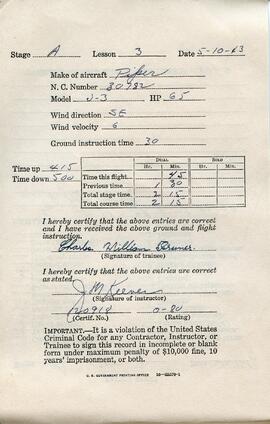 Stage A Lesson 3 Date 5-10-43
Make of aircraft Piper
N. C. Number 30982
Model J-3 HP 65
Wind direction SE
Wind velocity 6
Ground instruction time 30
DUAL SOLO
Hr. Min. Hr. Min.
Time up 415 Time this flight 45
Time down 500 Previous time 1 30
Total stage time 2 15
Total course time 2 15
I hereby certify that the above entries are correct
and I have received the above ground and flight
instruction.
Charles William
(Signature of trainee)
I hereby certify that the above entries are correct
as stated.
J M
(Signature of instructor)
20918 0-80
(Certif. No.) (Rating)
IMPORTANT.—It is a violation of the United States
Criminal Code for any Contractor, Instructor, or
Trainee to sign this record in incomplete or blank
form under maximum penalty of $10,000 fine, 10
years' imprisonment, or both.
U. S. GOVERNMENT PRINTING OFFICE